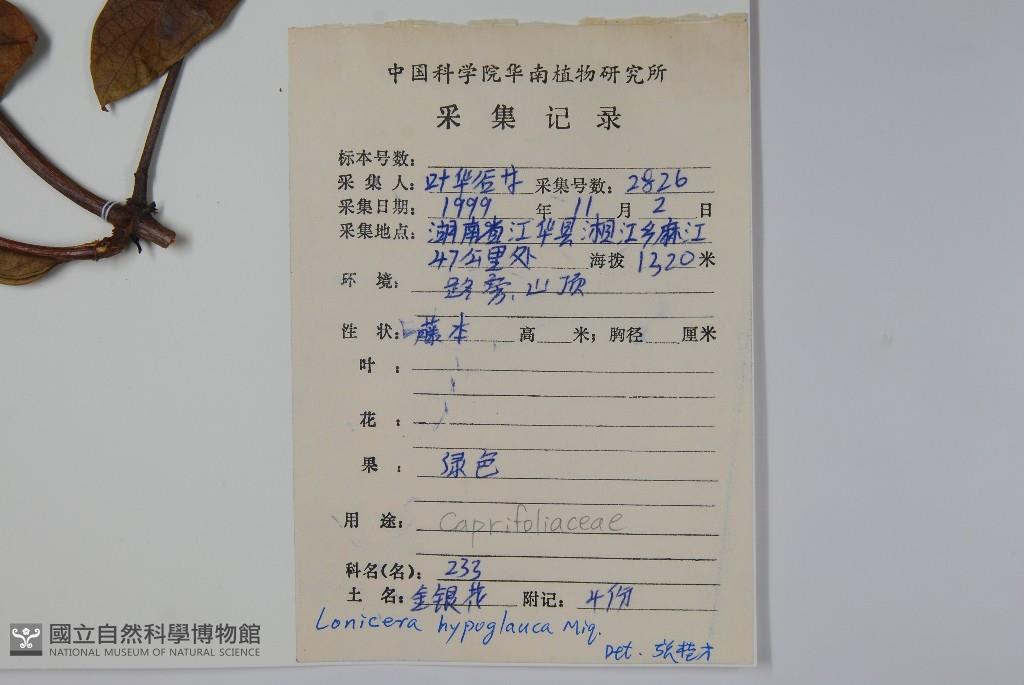 中国科学院华南植物研究所
采集记录
标本号数：
采集人：叶华谷 采集号数：2826
采集日期：1999年11月2日
采集地点：湖南省江华县湘江乡麻江
47公里处 海拨1320米
环境：路旁、山顶
性状：藤本 高 米；胸径 厘米
叶：
花：
果：绿色
用途：Caprifoliaceae
科名(名)：233
土名：金银花 附记：4份
Lonicera hypoglauca Miq.
Det. 张
國立自然科學博物館
NATIONAL MUSEUM OF NATURAL SCIENCE